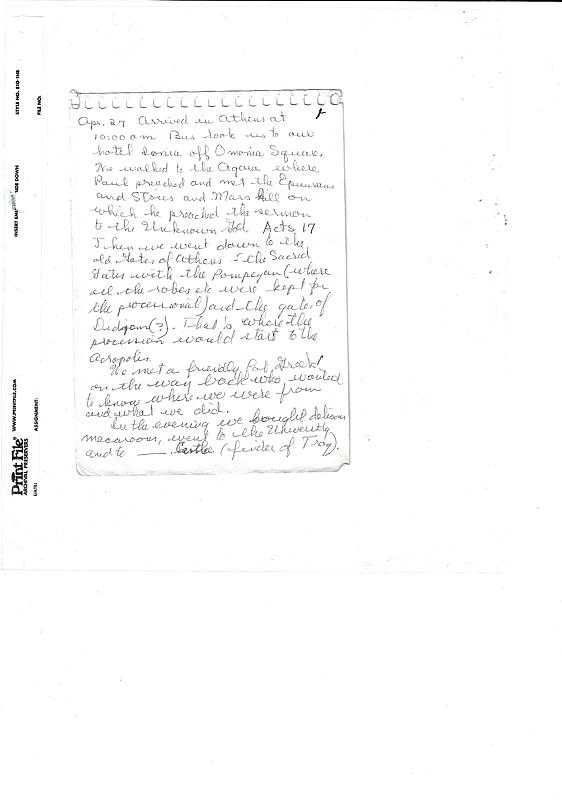 1
Apr. 27 Arrived in Athens at
10:00 a.m. Bus took us to our
hotel Ionia off Omonia Square.
We walked to the Agora where
Paul preached and met the Epicureans
and Stoics and Mars Hill on
which he preached the sermon
to the Unknown God. Acts 17
Then we went down to the
old Gates of Athens & the Sacred
Gates with the Pompeyan (where
all the robes etc were kept for
the processional) and the gate of
(?). That's where the
procession would start to the
Acropolis.
We met a friendly fat Greek
on the way back who wanted
to know where we were from
and what we did.
In the evening we bought delicious
macaroons, went to the University
and to ____ (finder of Troy).
Print File®
ARCHIVAL PRESERVERS
WWW.PRINTFILE.COM
DATE:
ASSIGNMENT:
INSERT EMULSION SIDE DOWN
STYLE NO. 810-1HB
FILE NO: